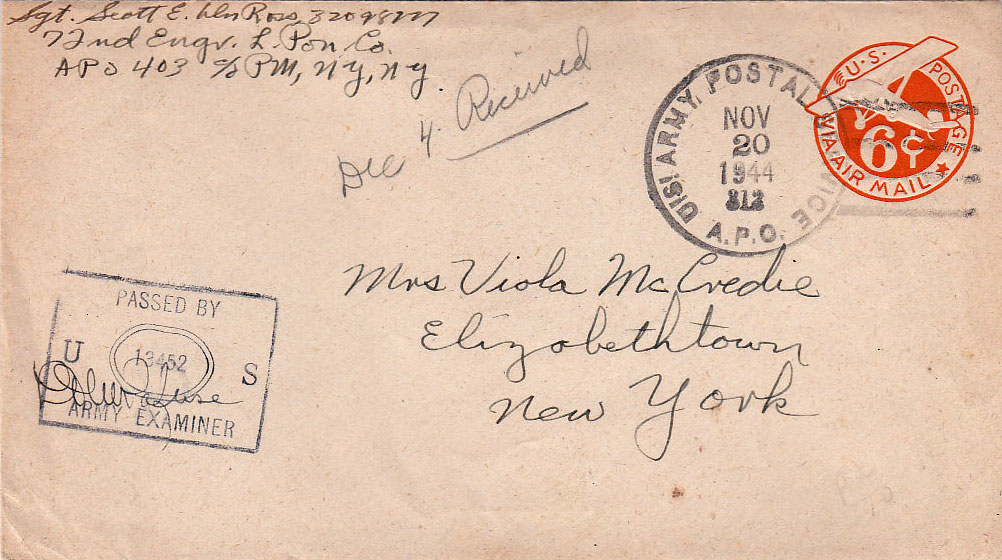 Sgt. Scott E. Ross, 32098777
72nd Engr. L. Pon. Co.
APO 403 c/o PM, NY, NY.
Dec 4. Received
U.S. ARMY POSTAL SERVICE
NOV
20
1944
312
A.P.O.
U.S. POSTAGE
6¢
VIA AIR MAIL
Mrs Viola McCredie
Elizabethtown
New York
PASSED BY
U 13452 S
ARMY EXAMINER